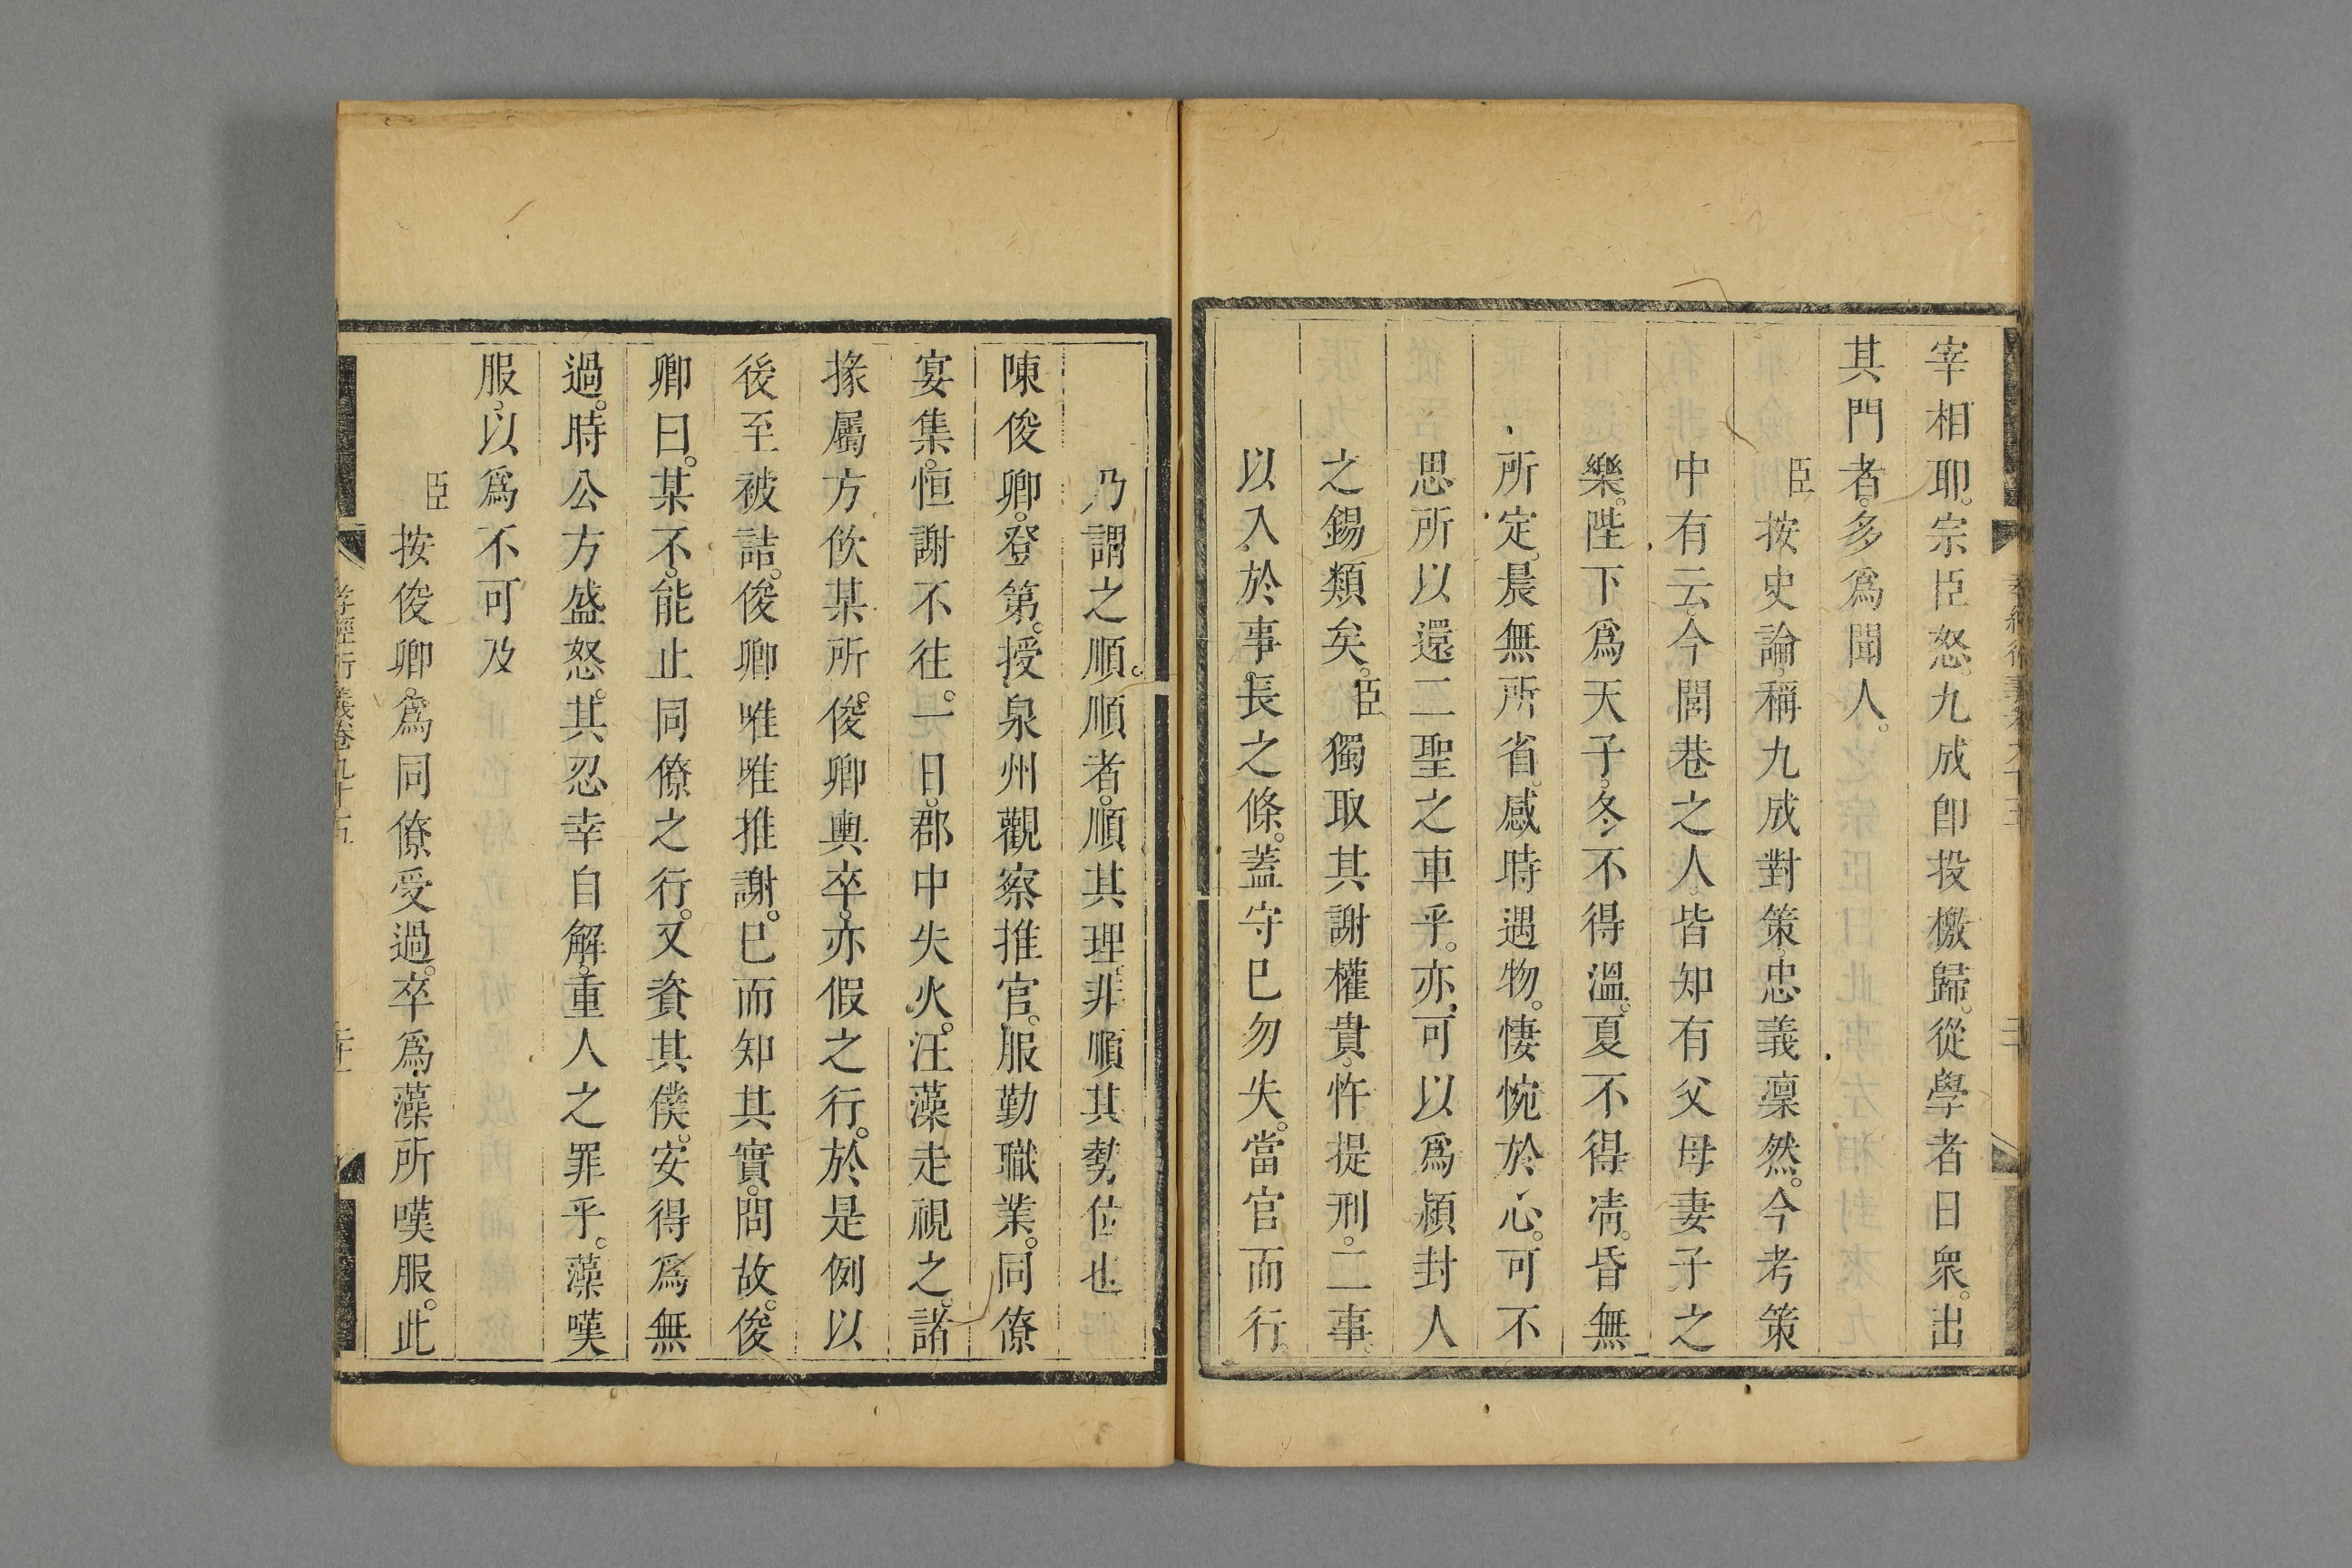 宰相耶。宗臣怒。九成卽投檄歸。從學者日衆。出
其門者。多爲聞人。
臣按史論。稱九成對策。忠義凜然。今考策
中有云。今閭巷之人。皆知有父母妻子之
樂。陛下爲天子。冬不得溫。夏不得凊。昏無
所定。晨無所省。感時遇物。悽惋於心。可不
思所以還二聖之車乎。亦可以爲潁封人
之錫類矣。臣獨取其謝權貴。忤提刑。二事。
以入於事長之條。蓋守已勿失。當官而行。
乃謂之順。順者。順其理。非順其勢位也
陳俊卿。登第。授泉州觀察推官。服勤職業。同僚
宴集。恒謝不往。一日。郡中失火。汪藻走視之。諸
掾屬方飲某所。俊卿輿卒。亦假之行。於是例以
後至被詰。俊卿唯唯推謝。已而知其實。問故。俊
卿曰。某不能止同僚之行。又資其僕。安得爲無
過。時公方盛怒。其忍幸自解。重人之罪乎。藻嘆
服。以爲不可及
臣按俊卿。爲同僚受過。卒爲藻所嘆服。此
孝經衍義卷九十五